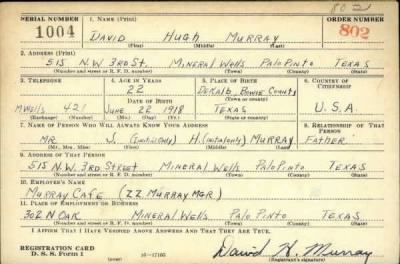 802
SERIAL NUMBER 1. NAME (Print) ORDER NUMBER
1004 DAVID HUGH MURRAY 802
(First) (Middle) (Last)
2. ADDRESS (Print)
515 N.W. 3RD ST. MINERAL WELLS PALO PINTO TEXAS
(Number and street or R. F. D. number) (Town) (County) (State)
3. TELEPHONE 4. AGE IN YEARS 5. PLACE OF BIRTH 6. COUNTRY OF CITIZENSHIP
22 DEKALB, BOWIE COUNTY
DATE OF BIRTH (Town or county)
M.WELLS 421 JUNE 22 1918 TEXAS U.S.A.
(Exchange) (Number) (Mo.) (Day) (Yr.) (State or country)
7. NAME OF PERSON WHO WILL ALWAYS KNOW YOUR ADDRESS 8. RELATIONSHIP OF THAT PERSON
MR J. (INITIAL ONLY) H. (INITIAL ONLY) MURRAY FATHER
(Mr., Mrs., Miss) (First) (Middle) (Last)
9. ADDRESS OF THAT PERSON
515 N.W. 3RD STREET MINERAL WELLS PALO PINTO TEXAS
(Number and street or R. F. D. number) (Town) (County) (State)
10. EMPLOYER'S NAME
MURRAY CAFE (ZZ MURRAY MGR)
11. PLACE OF EMPLOYMENT OR BUSINESS
302 N OAK MINERAL WELLS PALO PINTO TEXAS
(Number and street or R. F. D. number) (Town) (County) (State)
I AFFIRM THAT I HAVE VERIFIED ABOVE ANSWERS AND THAT THEY ARE TRUE.
REGISTRATION CARD
D. S. S. FORM 1 16—17105 David H. Murray
(over) (Registrant's signature)